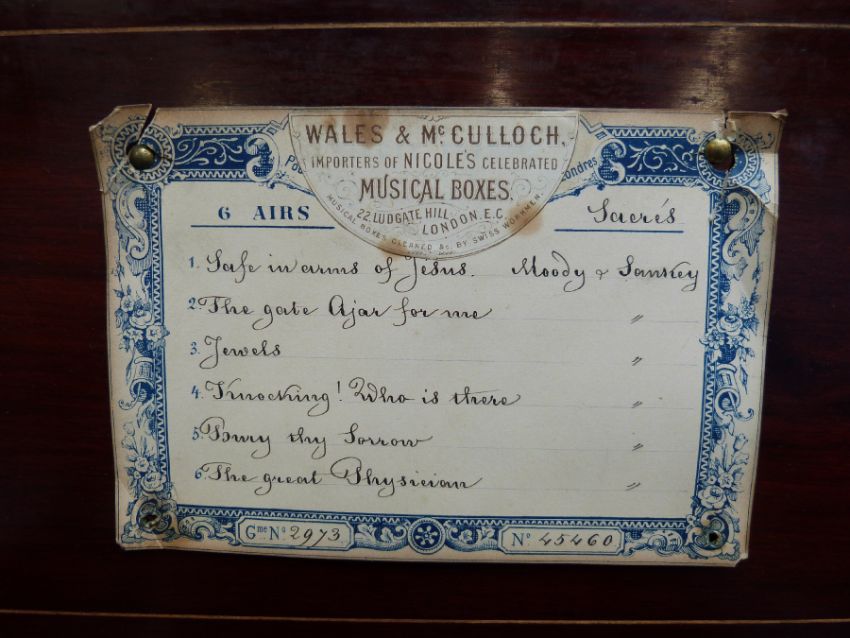 WALES & Mc CULLOCH,
IMPORTERS OF NICOLE'S CELEBRATED
MUSICAL BOXES,
22, LUDGATE HILL,
LONDON. E.C.
MUSICAL BOXES CLEANED &c. BY SWISS WORKMEN.
6 AIRS Sacrés
1. Safe in arms of Jesus. Moody & Sankey
2. The gate Ajar for me "
3. Jewels "
4. Knocking! Who is there "
5. Bury thy Sorrow "
6. The great Physician "
Gme No. 2973 No. 45460